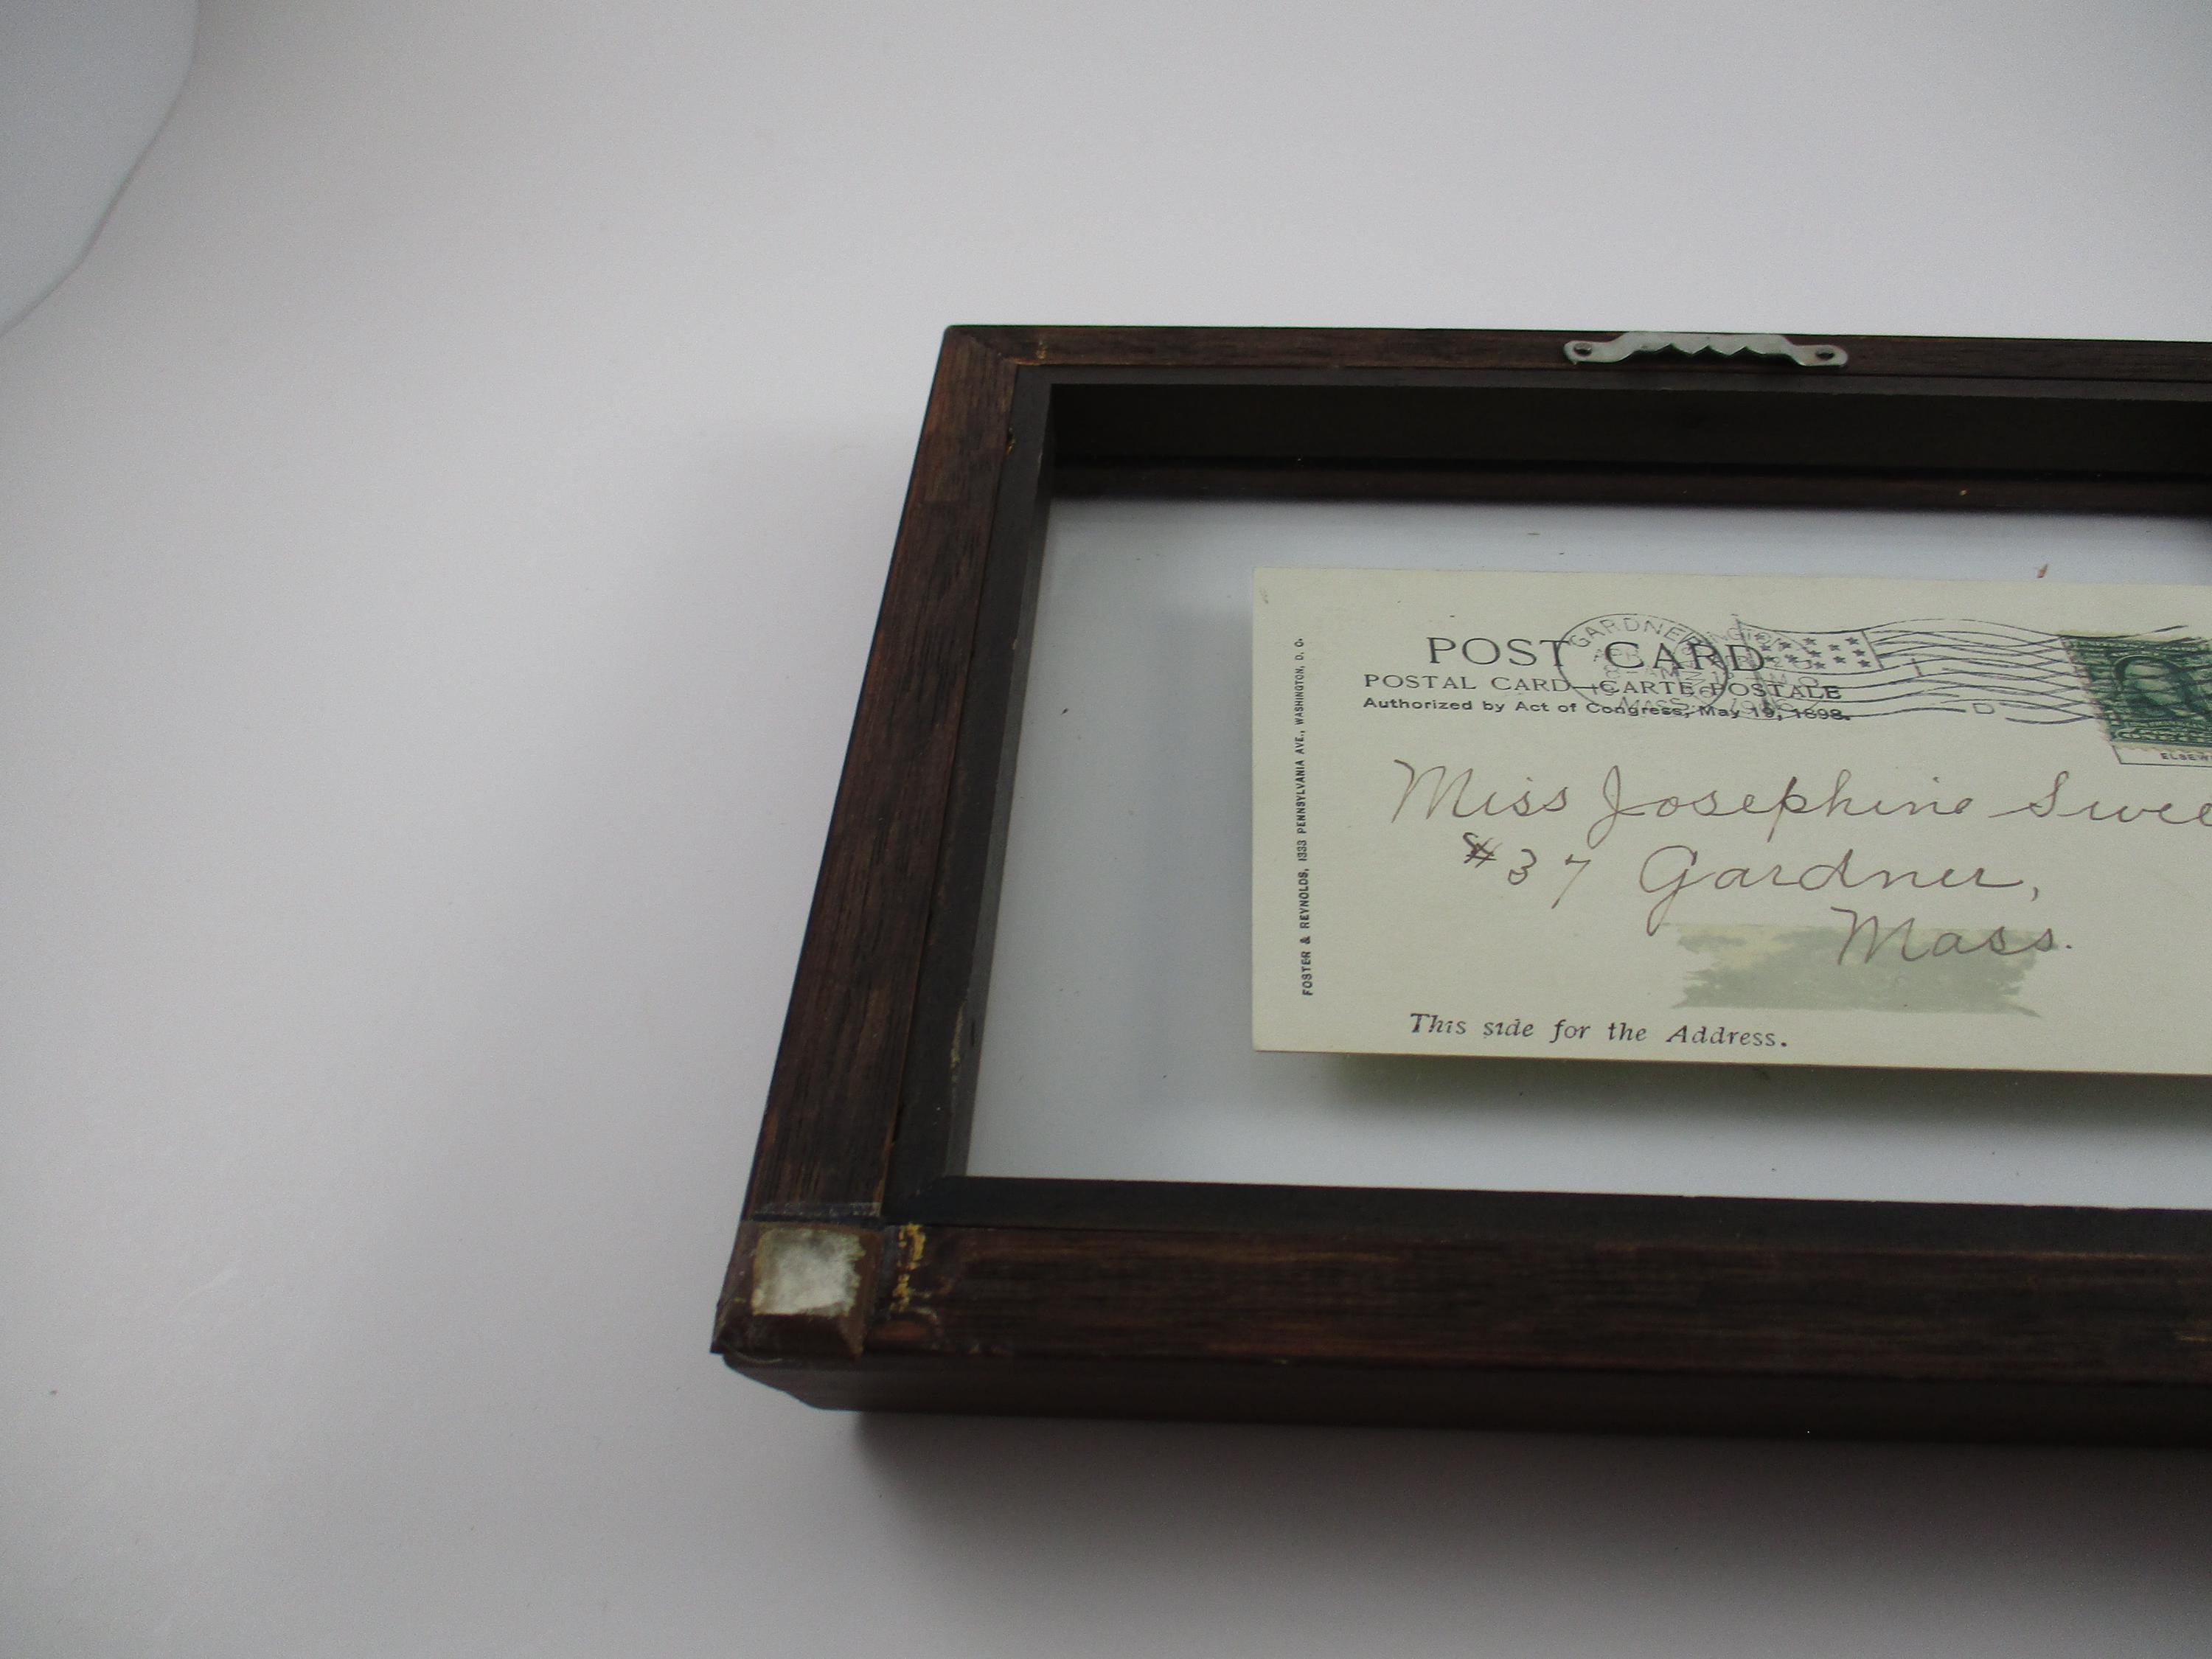 POST CARD
POSTAL CARD—CARTE POSTALE
Authorized by Act of Congress, May 19, 1898.
GARDNER
MASS.
Miss Josephine
#37 Gardner,
Mass.
This side for the Address.
FOSTER & REYNOLDS, 1333 PENNSYLVANIA AVE., WASHINGTON, D. C.